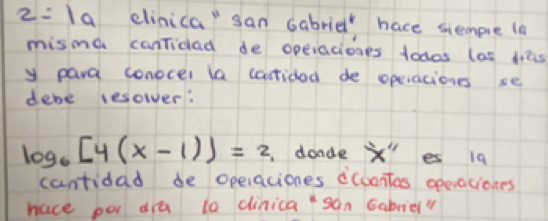 2= la clinica "san Gabriel", hace siempre la
misma cantidad de operaciones todos los dias
y para conocer la cantidad de operaciones se
debe resolver:
log₆ [4(x-1)] = 2, donde "x" es la
cantidad de operaciones ¿cuantas operaciones
hace por dia la clinica "san Gabriel"